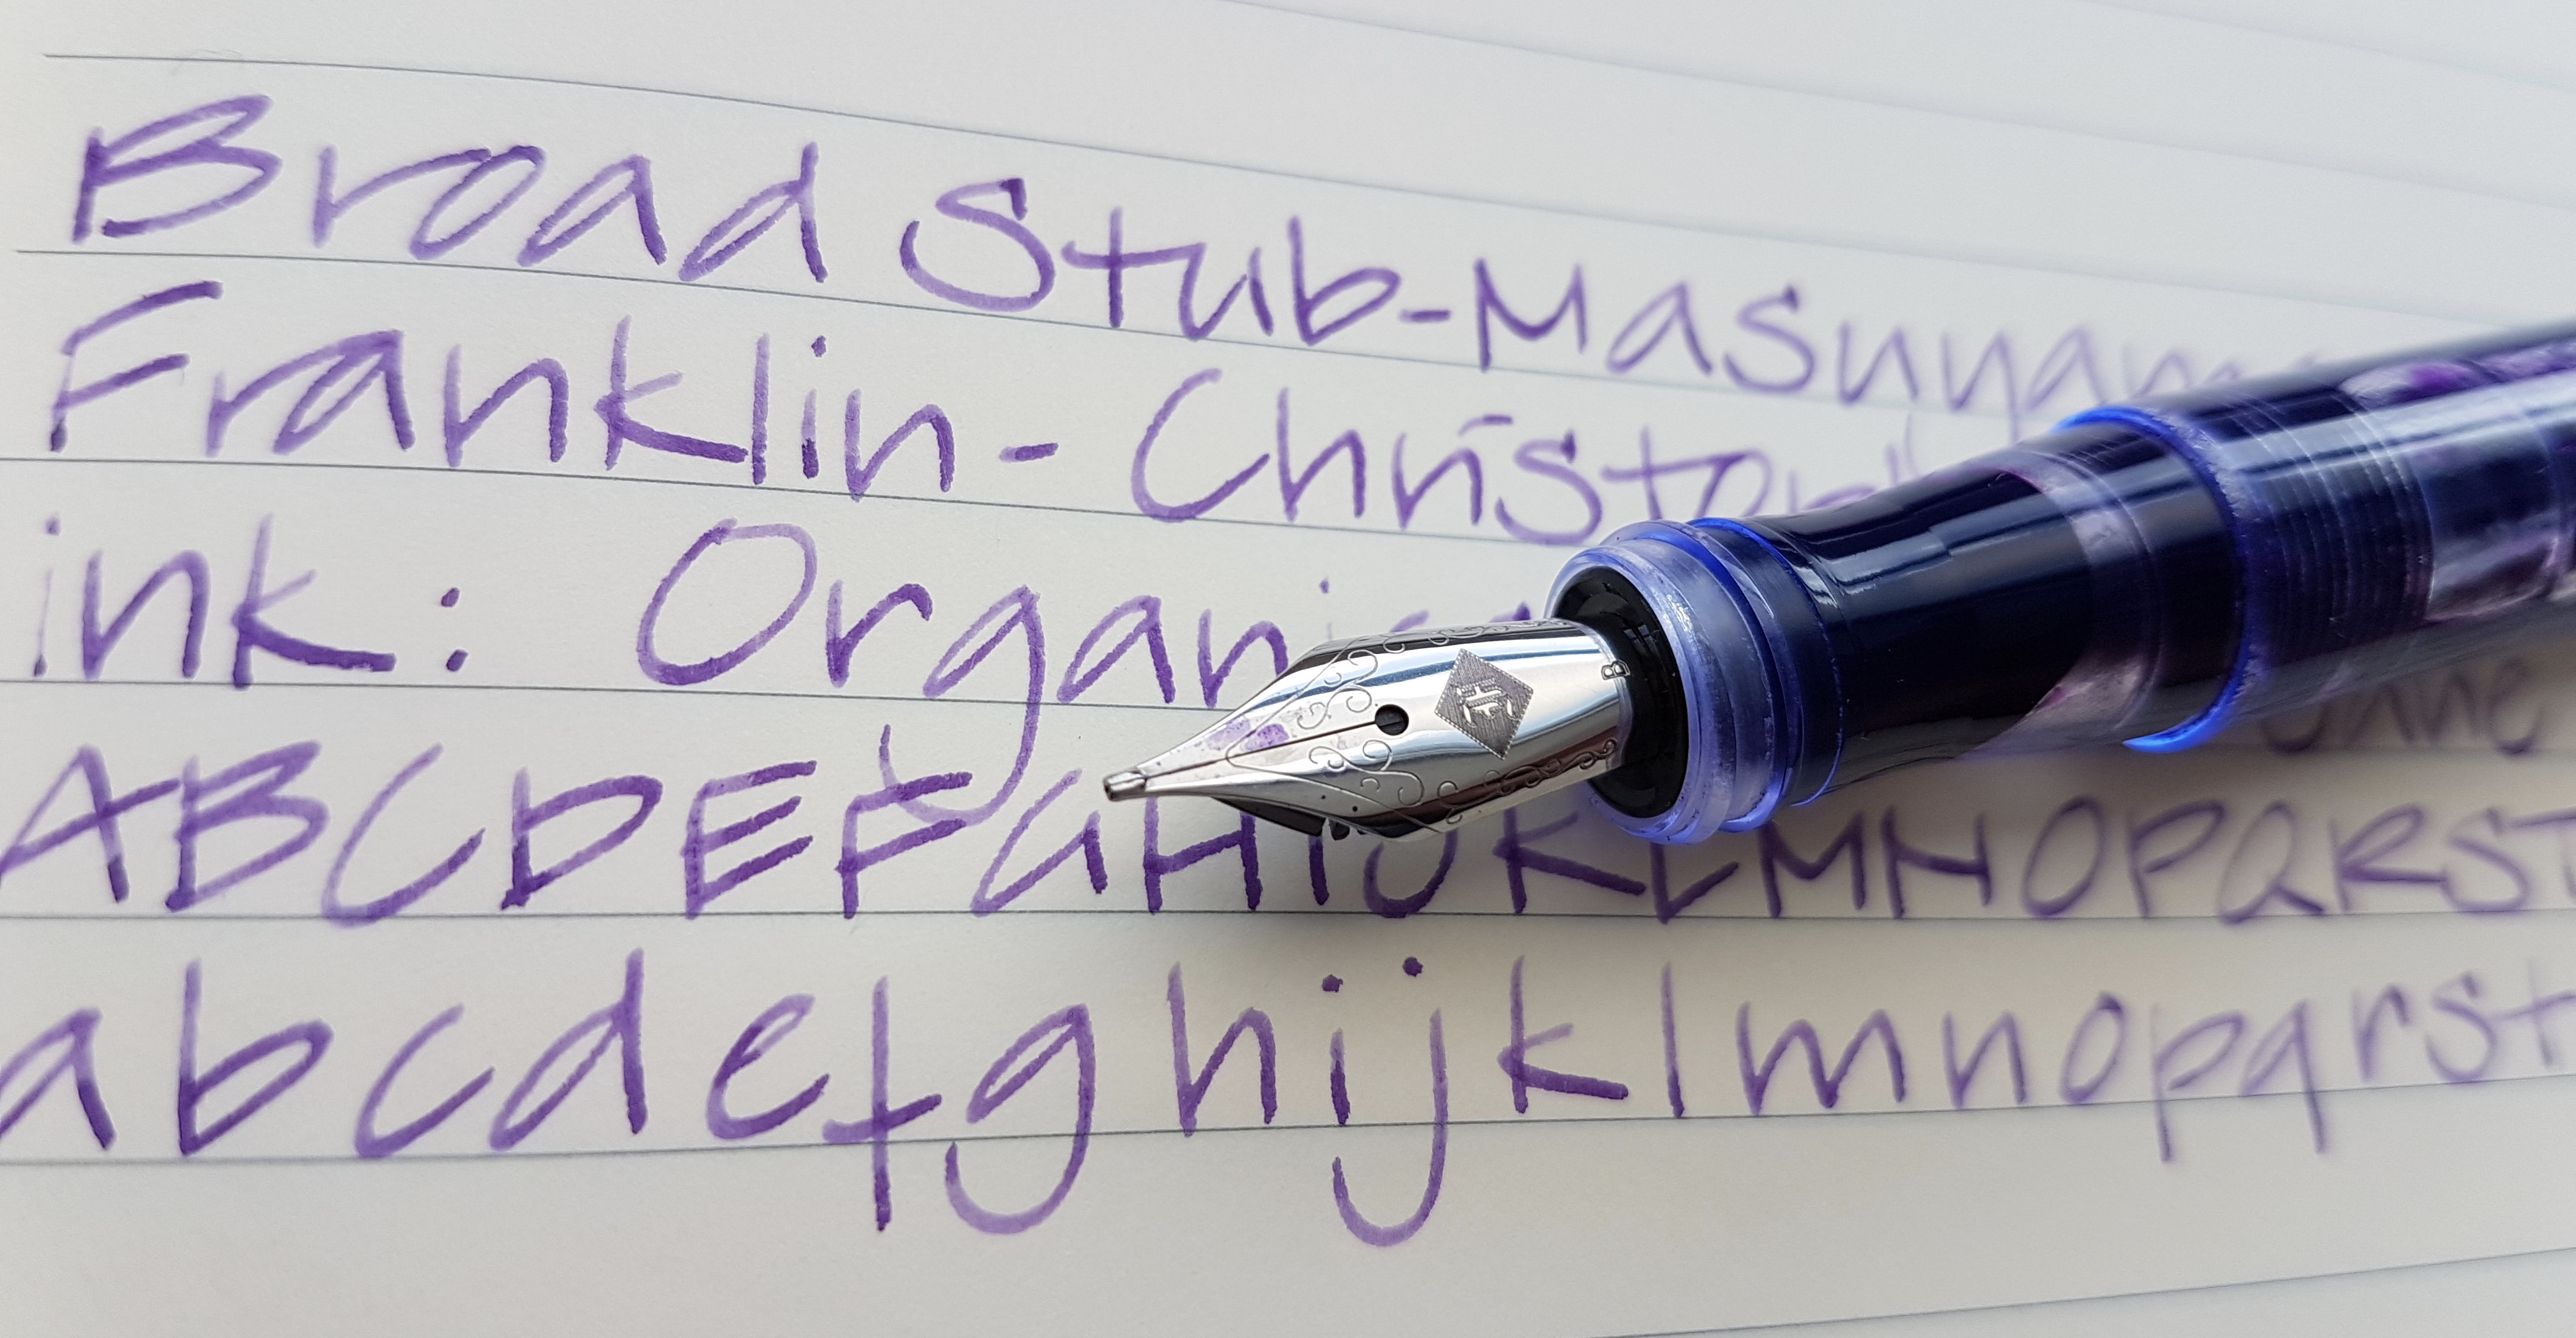 Broad Stub-Masuyama
Franklin-Christoph
ink: Organics
ane
ABCDEFGHIJKLMNOPQRST
abcdefghijklmnopqrst
B